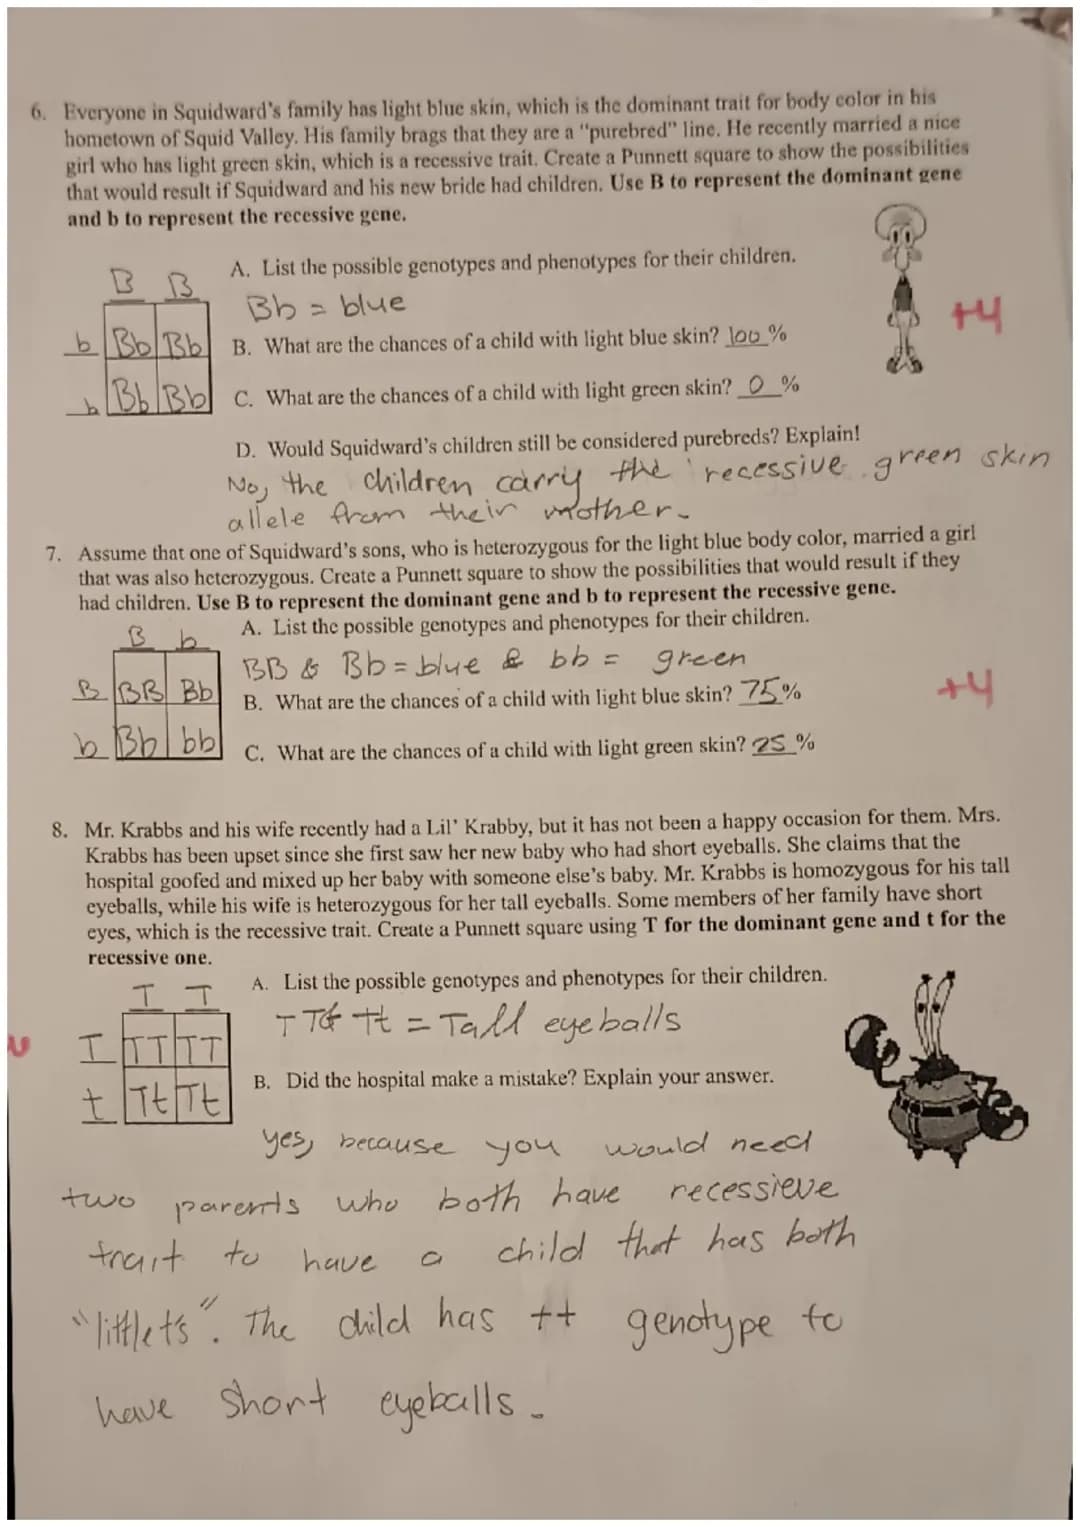 6. Everyone in Squidward's family has light blue skin, which is the dominant trait for body color in his
hometown of Squid Valley. His family brags that they are a "purebred" line. He recently married a nice
girl who has light green skin, which is a recessive trait. Create a Punnett square to show the possibilities
that would result if Squidward and his new bride had children. Use B to represent the dominant gene
and b to represent the recessive gene.
A. List the possible genotypes and phenotypes for their children.
B B
Bb = blue
+4
b Bb Bb
B. What are the chances of a child with light blue skin? 100 %
b Bb Bb
C. What are the chances of a child with light green skin? 0 %
D. Would Squidward's children still be considered purebreds? Explain!
No, the children carry the recessive green skin
allele from their mother.
7. Assume that one of Squidward's sons, who is heterozygous for the light blue body color, married a girl
that was also heterozygous. Create a Punnett square to show the possibilities that would result if they
had children. Use B to represent the dominant gene and b to represent the recessive gene.
A. List the possible genotypes and phenotypes for their children.
B b
BB & Bb = blue & bb = green
B BB Bb
B. What are the chances of a child with light blue skin? 75%
+4
b Bb bb
C. What are the chances of a child with light green skin? 25 %
8. Mr. Krabbs and his wife recently had a Lil' Krabby, but it has not been a happy occasion for them. Mrs.
Krabbs has been upset since she first saw her new baby who had short eyeballs. She claims that the
hospital goofed and mixed up her baby with someone else's baby. Mr. Krabbs is homozygous for his tall
eyeballs, while his wife is heterozygous for her tall eyeballs. Some members of her family have short
eyes, which is the recessive trait. Create a Punnett square using T for the dominant gene and t for the
recessive one.
A. List the possible genotypes and phenotypes for their children.
T T
TT & Tt = Tall eyeballs
T TT TT
B. Did the hospital make a mistake? Explain your answer.
t Tt Tt
yes, because you would need
two parents who both have recessieve
trait to have a child that has both
"little t's". The child has tt genotype to
have short eyeballs.